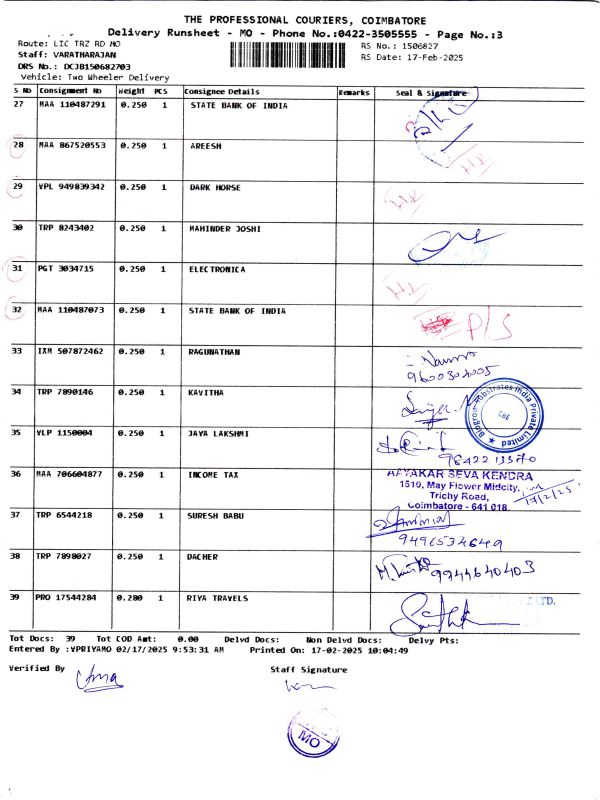 THE PROFESSIONAL COURIERS, COIMBATORE
Delivery Runsheet - MO - Phone No.:0422-3505555 - Page No.:3
Route: LIC TRZ RD MO
RS No.: 1506827
Staff: VARATHARAJAN
RS Date: 17-Feb-2025
DRS No.: DCJB150682703
Vehicle: Two Wheeler Delivery
S No Consignment No Weight PCS Consignee Details Remarks Seal & Signature
27 MAA 110487291 0.250 1 STATE BANK OF INDIA
28 MAA 867520553 0.250 1 AREESH
29 VPL 949839342 0.250 1 DARK HORSE
30 TRP 8243402 0.250 1 MAHINDER JOSHI
31 PGT 3034715 0.250 1 ELECTRONICA
32 MAA 110487073 0.250 1 STATE BANK OF INDIA P/S
33 IXM 507872462 0.250 1 RAGUNATHAN
9600302005
34 TRP 7890146 0.250 1 KAVITHA
35 VLP 1150004 0.250 1 JAYA LAKSHMI
9842213570
36 MAA 706604877 0.250 1 INCOME TAX AAYAKAR SEVA KENDRA
1510, May Flower Midcity,
Trichy Road,
Coimbatore - 641 018.
17/2/25
37 TRP 6544218 0.250 1 SURESH BABU
9496534649
38 TRP 7898027 0.250 1 DACHER
9944640403
39 PRO 17544284 0.280 1 RIYA TRAVELS
Tot Docs: 39 Tot COD Amt: 0.00 Delvd Docs: Non Delvd Docs: Delvy Pts:
Entered By :VPRIYAMO 02/17/2025 9:53:31 AM Printed On: 17-02-2025 10:04:49
Verified By Staff Signature
MO